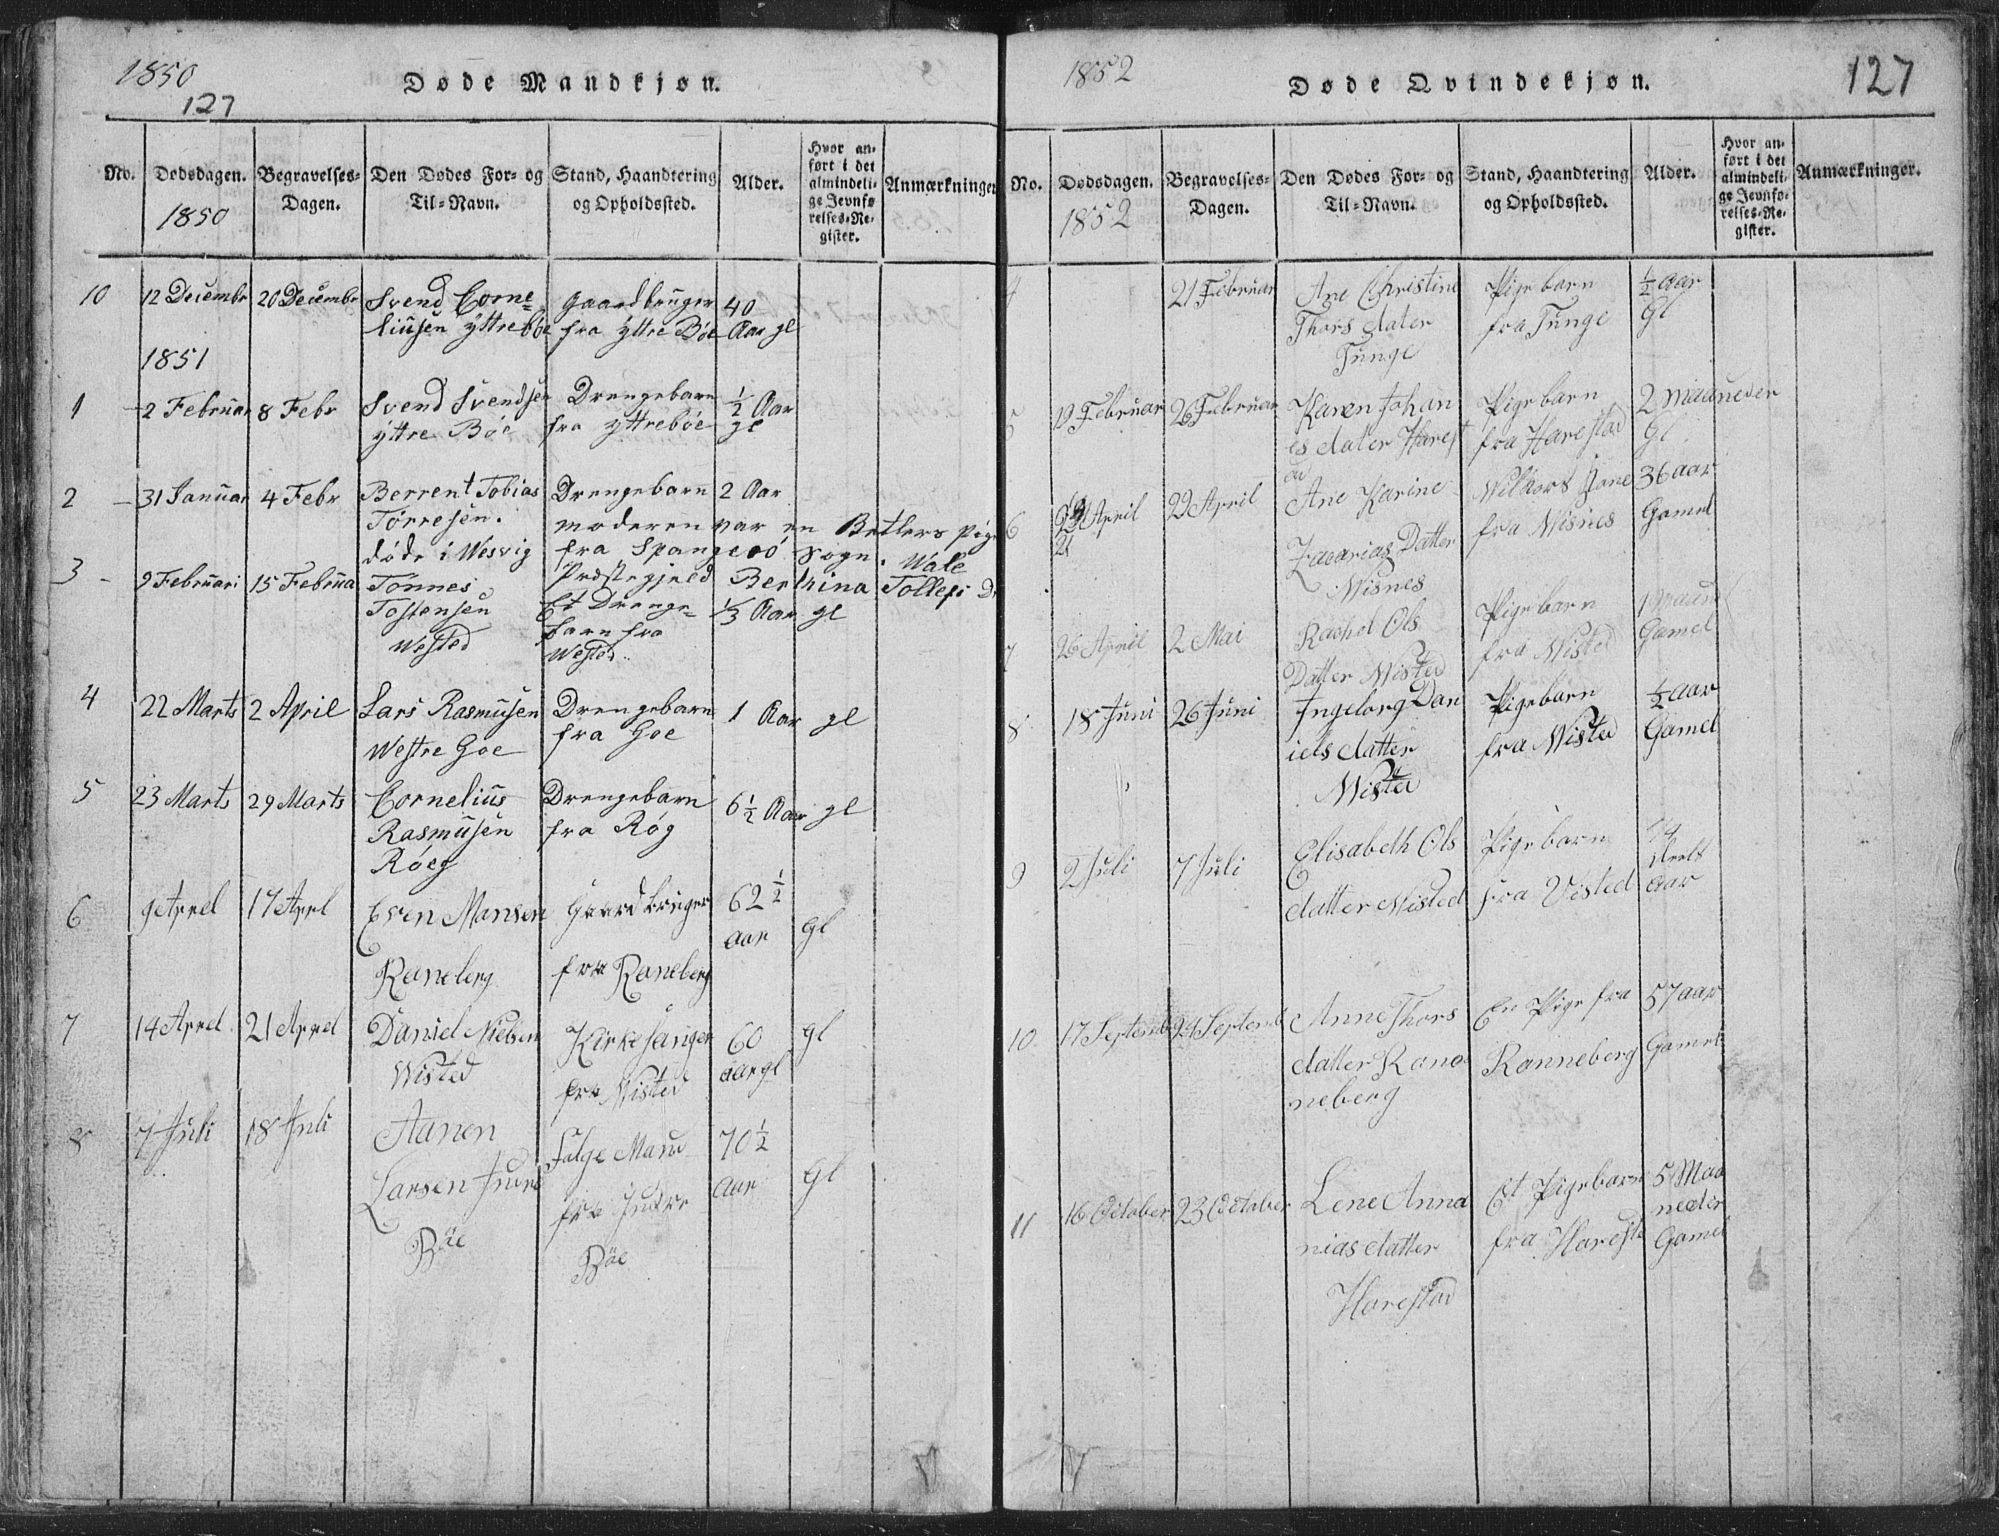 1850
127
Døde Mandkjøn.
No.
Dødsdagen.
1850
Begravelses-
Dagen.
Den Dødes For- og
Til-Navn.
Stand, Haandtering
og Opholdssted.
Alder.
Hvor an-
ført i det
almindeli-
ge Jevnfø
relses-Re-
gister.
Anmærkninger
10 12 Decembr 20 Decembr Svend Corne- Gaardbruger 40
liusen Yttrebøe fra Yttre Bøe Aar gl
1851
1 2 Februar 8 Febr Svend Svendsen Drengebarn ½ Aar
Yttre Bøe fra Yttrebøe gl
2 31 Januar 4 Febr Berrent Tobias Drengebarn 2 Aar
Tørresen. moderen var en Betlers Pige
døde i Wesvig fra Spangeröö Sogn. Wale
Præstegjeld Berthina Tollefs D
3 9 Februari 15 Februa Tönnes Et Drenge- ⅓ Aar gl
Tostensen barn fra
Wested Wested
4 22 Marts 2 April Lars Rasmusen Drengebarn 1 Aar gl
Westre Goe fra Goe
5 23 Marts 29 Marts Cornelius Drengebarn 6½ Aar gl
Rasmusen fra Røg
Røeg
6 9 Aprel 17 Aprl Even Mansen Gaardbruger 62½
aar gl
Raneberg fra Raneberg
7 14 Aprel 21 Aprel Daniel Nielsen Kirkesanger 60 gl
Wisted fra Wisted aar gl
8 7 Juli 18 Juli Aanen Falge Mand 70½
Larsen Indre fra Indre aar gl
Böe Böe
1852
Døde Qvindekjøn.
127
No.
Dødsdagen.
1852
Begravelses-
Dagen.
Den Dødes For- og
Til-Navn.
Stand, Haandtering
og Opholdssted.
Alder.
Hvor an-
ført i det
almindeli-
ge Jevnfø-
relses-Re-
gister.
Anmærkninger.
4 21 Februar Ane Christine Pigebarn ½ aar
Thors dater fra Tunge Gl
Tunge
5 19 Februar 26 Februar Karen Johan Pigebarn 2 maaneder
es dater Harest fra Harestad Gl
ad
6 21 April 29 April Ane Karine Wilkors Kone 36 aar
Zacarias Datter fra Wisnes Gamel
Wisnes
7 26 April 2 Mai Rachel Ols Pigebarn 1 Maaned
Datter Wisted fra Wisted Gamel
8 18 Juni 26 Juni Ingeborg Dan Pigebarn ½ aar
iels datter fra Wisted Gamel
Wisted
9 2 Juli 7 Juli Elisabeth Ols Pigebarn ¼
datter Wisted fra Visted aar
10 17 Septemb 24 Septemb Anne Thors En Pige fra 57 aar
datter Rane Ranneberg Gamel
neberg
11 16 October 23 October Lene Anna Et Pigebarn 5 Maa
nias datter fra Harestad neder
Harestad Gamel